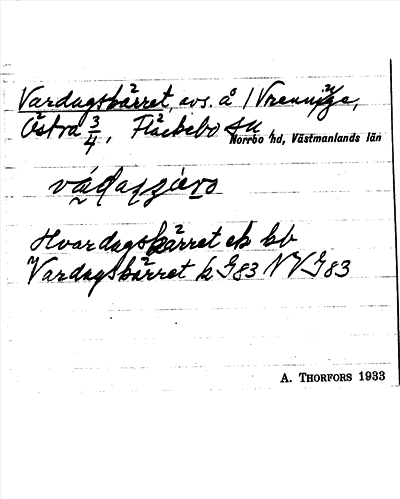 Vardagskärret, avs. å /Vrenninge,
Östra 3/4, Fläckebo sn
Norrbo hd, Västmanlands län
Hvardagskärret ek kb
Vardagskärret k G83 NVG83
A. THORFORS 1933